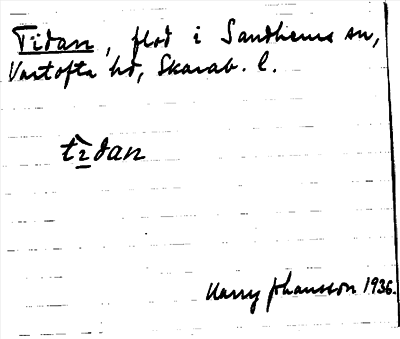 Tidan, flod i Sandhems sn,
Vartofta hd, Skarab. l.
tìdan
Harry Johansson 1936.